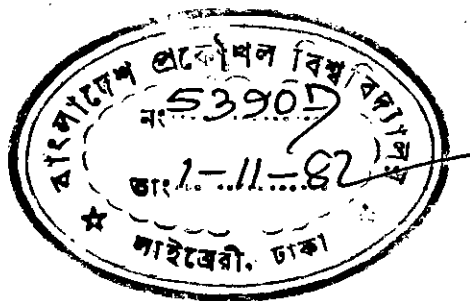 বাংলাদেশ প্রকৌশল বিশ্ববিদ্যালয়
নং 53907
তাং 1-11-82
লাইব্রেরী, ঢাকা